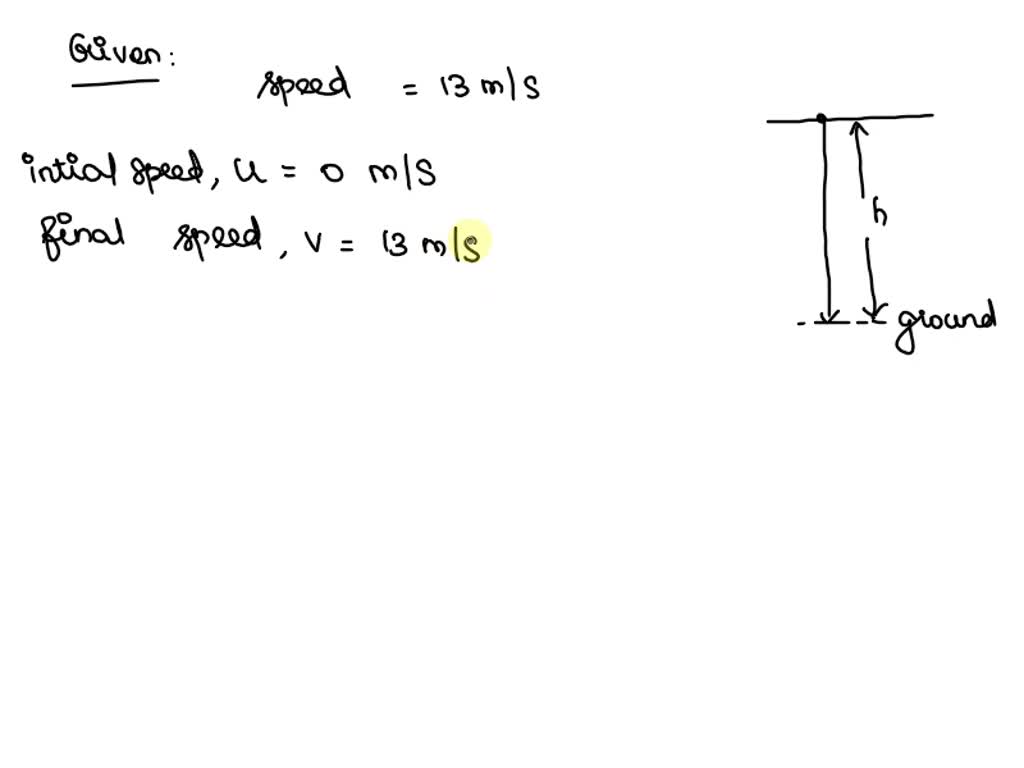 Given:
speed = 13 m/s
intial speed, u = 0 m/s
final speed, v = 13 m/s
h
ground